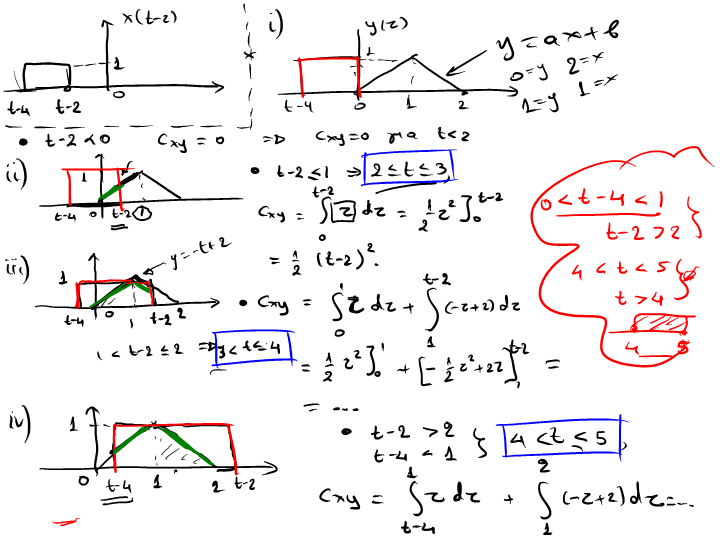 x(t-2)
1
t-4 t-2 0
i) y(τ)
1
t-4 0 1 2
y = ax+b
0=y 2=x
1=y 1=x
• t-2<0 Cxy = 0 ⇒ Cxy=0 για t<2
ii) 1
t-4 0 t-2 1
• t-2≤1 ⇒ 2≤t≤3
Cxy = ∫₀^{t-2} τ dτ = 1/2 τ²]₀^{t-2}
= 1/2 (t-2)².
iii) 1
y=-t+2
t-4 0 1 t-2 2
1 < t-2 ≤ 2 ⇒ 3<t≤4
• Cxy = ∫₀^1 τ dτ + ∫₁^{t-2} (-τ+2) dτ
= 1/2 τ²]₀^1 + [-1/2 τ²+2τ]₁^{t-2} =
= ...
0 < t-4 < 1
t-2 > 2 }
4 < t < 5
t > 4 }
4 5
iv) 1
0 t-4 1 2 t-2
• t-2 > 2
t-4 < 1 } 4 < t ≤ 5,
Cxy = ∫_{t-4}^1 τ dτ + ∫₁^2 (-τ+2) dτ = ...